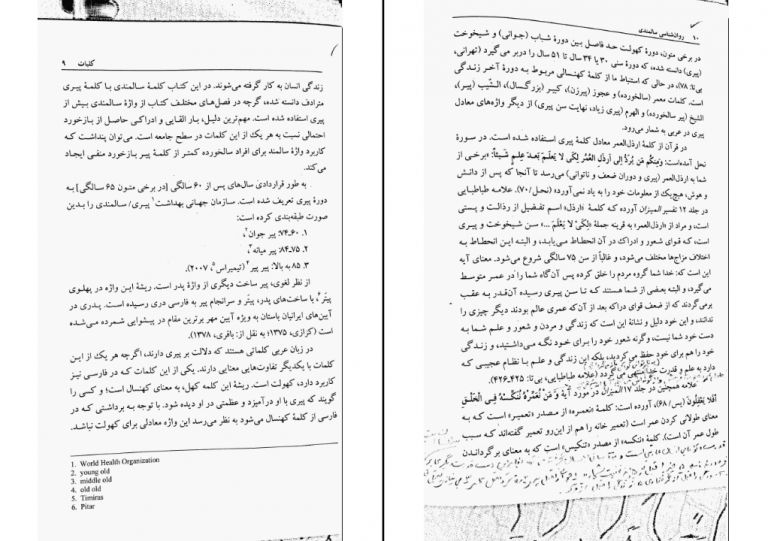 کلیات ۹
زندگی انسان به کار گرفته می‌شوند. در این کتاب کلمۀ سالمندی با کلمۀ پیری
مترادف دانسته شده، گرچه در فصل‌های مختلف کتاب از واژۀ سالمندی بیش از
پیری استفاده شده است. مهم‌ترین دلیل، بار القایی و ادراکی حاصل از بازخورد
احتمالی نسبت به هر یک از این کلمات در سطح جامعه است. می‌توان پنداشت که
کاربرد واژۀ سالمند برای افراد سالخورده کمتر از کلمۀ پیر بازخورد منفی ایجاد
می‌کند.
به طور قراردادی سال‌های پس از ۶۰ سالگی [در برخی متون ۶۵ سالگی] به
دورۀ پیری تعریف شده است. سازمان جهانی بهداشت۱ پیری/ سالمندی را بدین
صورت طبقه‌بندی کرده است:
۱. ۶۰-۷۴: پیر جوان۲،
۲. ۷۵-۸۴: پیر میانه۳،
۳. ۸۵ به بالا: پیر پیر۴ (تیمیراس۵، ۲۰۰۷).
از نظر لغوی، پیر ساخت دیگری از واژۀ پدر است. ریشۀ این واژه در پهلوی
پیتَر۶، با ساخت‌های پدر، پیتَر و سرانجام پیر به فارسی دری رسیده است. پدری در
آیین‌های ایرانیان باستان به ویژه آیین مهر برترین مقام در پیشوایی شمرده می‌شده
است (کزازی، ۱۳۷۵؛ به نقل از: باقری، ۱۳۷۸).
در زبان عربی کلماتی هستند که دلالت بر پیری دارند، اگرچه هر یک از این
کلمات با یکدیگر تفاوت‌هایی معنایی دارند. یکی از این کلمات که در فارسی نیز
کاربرد دارد، کهولت است. ریشۀ این کلمه کهل، به معنای کهنسال است؛ و کسی را
گویند که پیری با او درآمیزد و عظمتی در او دیده شود. با توجه به برداشتی که در
فارسی از کلمۀ کهنسال می‌شود به نظر می‌رسد این واژه معادلی برای کهولت نباشد.
1. World Health Organization
2. young old
3. middle old
4. old old
5. Timiras
6. Pitar
۱۰ روان‌شناسی سالمندی
در برخی متون، دورۀ کهولت حد فاصل بین دورۀ شباب (جوانی) و شیخوخت
(پیری) دانسته شده، که دورۀ سنی ۳۰ یا ۳۴ سال تا ۵۱ سال را دربر می‌گیرد (تهرانی،
بی‌تا: ۷۸)، در حالی که استنباط ما از کلمۀ کهنسالی مربوط به دورۀ آخر زندگی
است. کلمات معمر (سالخورده) و عجوز (پیرزن)، کبیر (بزرگسال)، الشّیب (پیر)،
الشیخ (پیر سالخورده) و الهرم (پیری زیاد، نهایت سن پیری) از دیگر واژه‌های معادل
پیری در عربی به شمار می‌رود.
در قرآن از کلمۀ ارذل‌العمر معادل کلمۀ پیری استفاده شده است. در سورۀ
نحل آمده‌است: وَمِنکُم مَن یُرَدُّ إِلی أرذَلِ العُمُر لِکَی لا یَعلَمَ بَعدَ عِلمٍ شَیئاً: «برخی از
شما به ارذل‌العمر (پیری و دوران ضعف و ناتوانی) می‌رسد تا آنجا که پس از دانش
و هوش، هیچ‌یک از معلومات خود را به یاد نمی‌آورد» (نحل/ ۷۰). علامه طباطبایی
در جلد ۱۲ تفسیر المیزان آورده که کلمۀ «ارذل» اسم تفضیل از رذالت و پستی
است، و مراد از «ارذل‌العمر» به قرینه جملۀ «لِکَیْ لا یَعْلَمَ ...» سن شیخوخت و پیری
است، که قوای شعور و ادراک در آن انحطاط می‌یابد، و البته این انحطاط به
اختلاف مزاج‌ها مختلف می‌شود، و غالباً از سن ۷۵ سالگی شروع می‌شود. معنای آیه
این است که: خدا شما گروه مردم را خلق کرده پس آن‌گاه شما را در عمر متوسط
می‌گیرد، و البته بعضی از شما هستند که تا سن پیری رسیده آن‌قدر به عقب
برمی‌گردند که از ضعف قوای دراکه بعد از آن‌که عمری عالم بودند دیگر چیزی را
ندانند، و این خود دلیل و نشانۀ این است که زندگی و مردن و شعور و علم شما به
دست خود شما نیست، وگرنه شعور خود را برای خود نگه می‌داشتید، و زندگی
خود را هم برای خود حفظ می‌کردید، بلکه این زندگی و علم با نظام عجیبی که
دارد به علم و قدرت خدا منتهی می‌گردد (علامه طباطبایی، بی‌تا: ۴۲۵-۴۲۶).
علامه همچنین در جلد ۱۷ المیزان در مورد آیۀ وَ مَنْ نُعَمِّرْهُ نُنَکِّسْهُ فِی الْخَلْقِ
أفَلا یَعْقِلُونَ (یس/ ۶۸)، آورده است: کلمۀ «نعمره» از مصدر «تعمیر» است که به
معنای طولانی کردن عمر است (تعمیر خانه را هم از این‌رو تعمیر گفته‌اند که سبب
طول عمر آن است). کلمۀ «ننکسه» از مصدر «تنکیس» است که به معنای برگرداندن